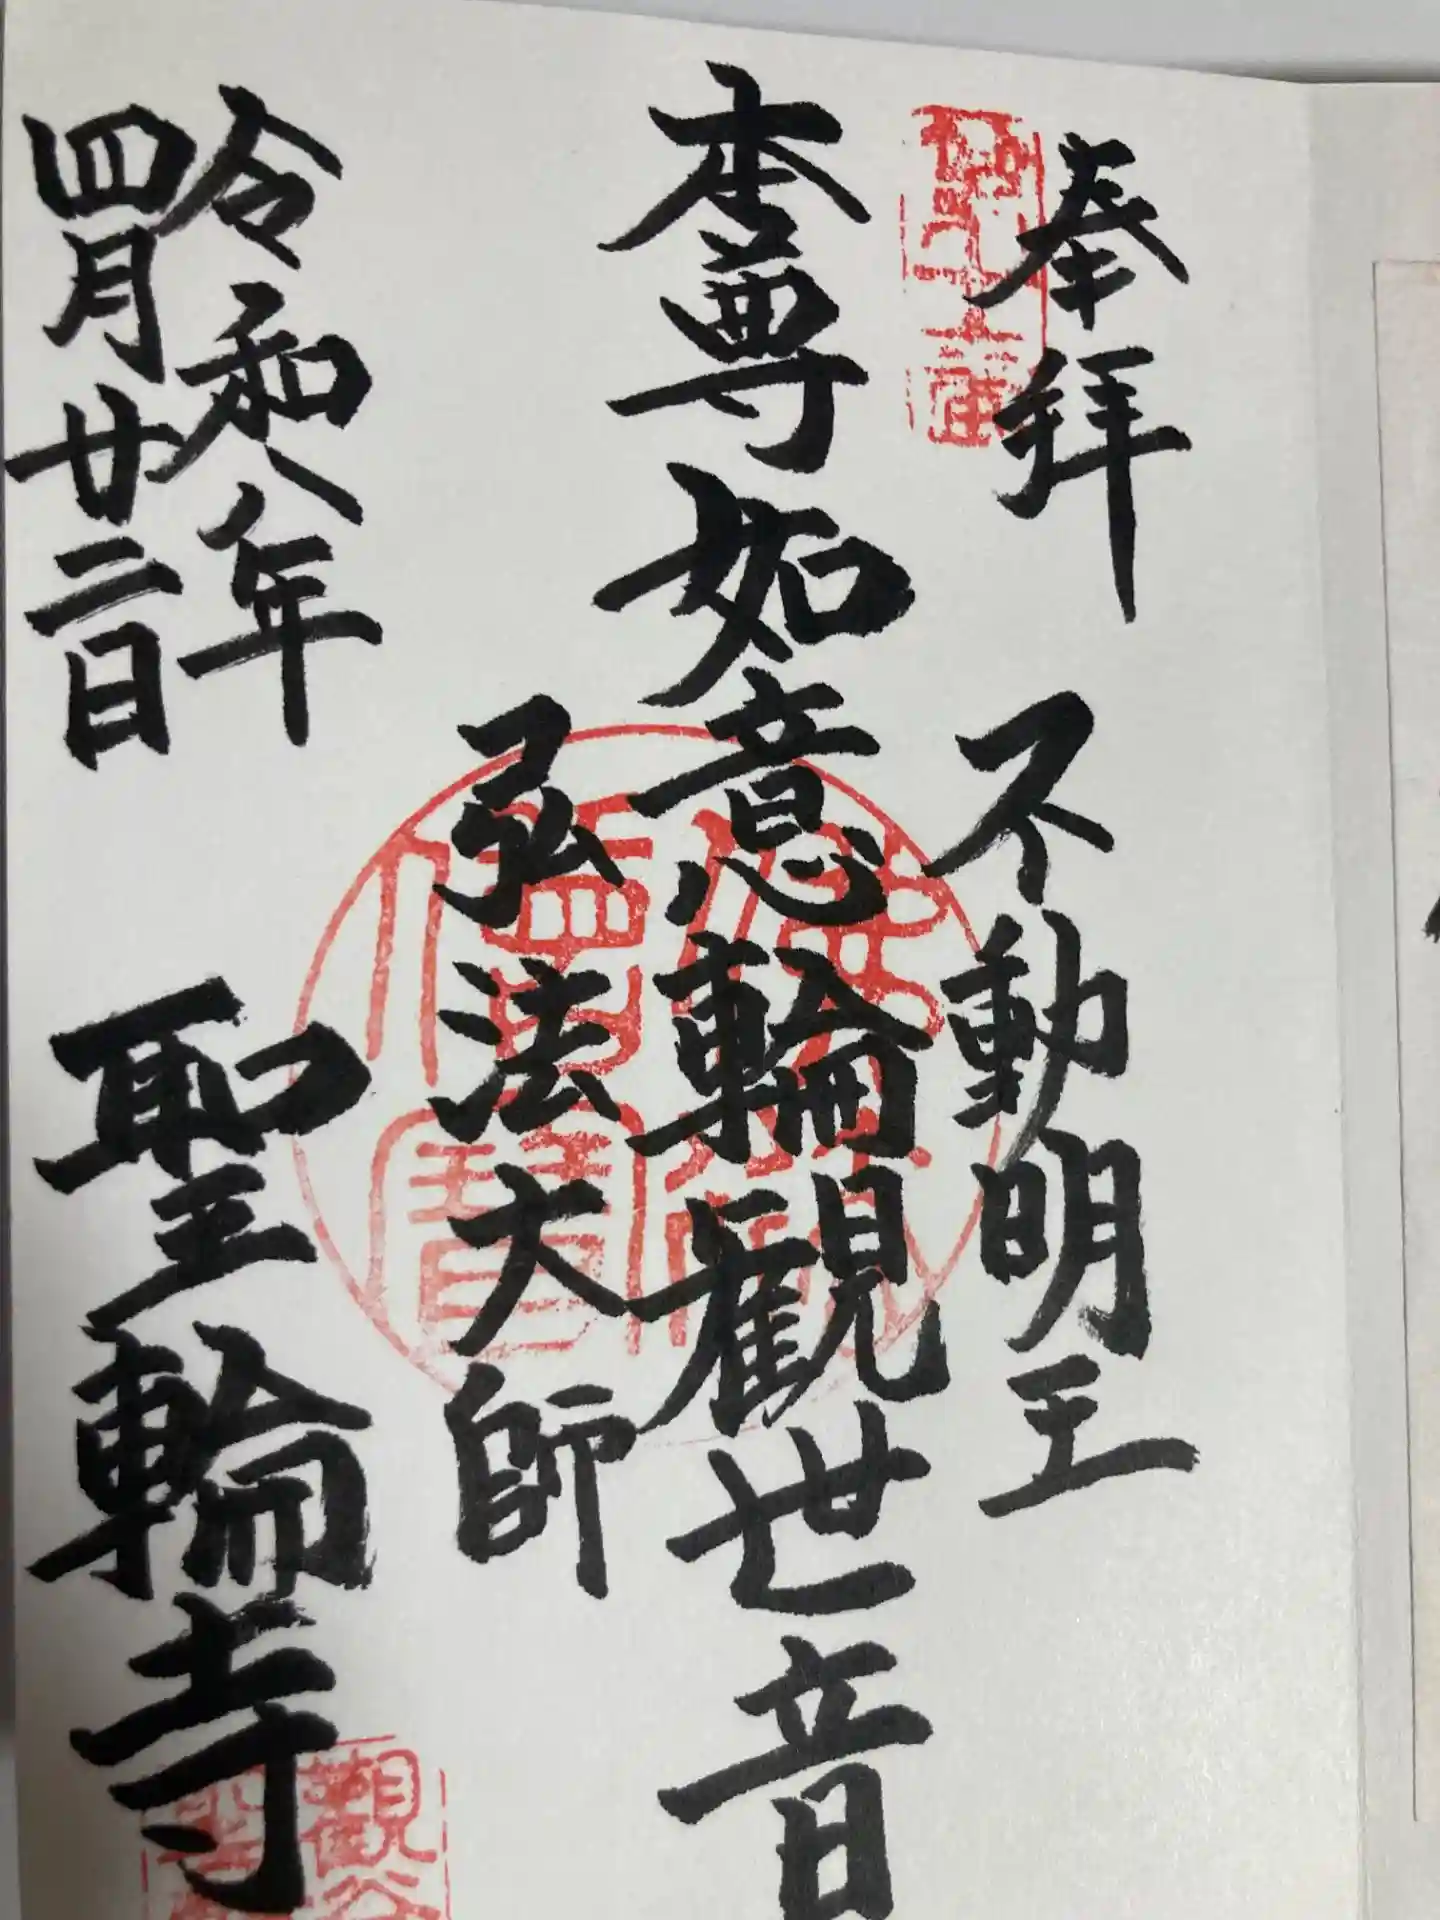 奉拝
不動明王
本尊如意輪観世音
弘法大師
令和八年
四月廿二日
聖輪寺
佛法僧寶
觀谷